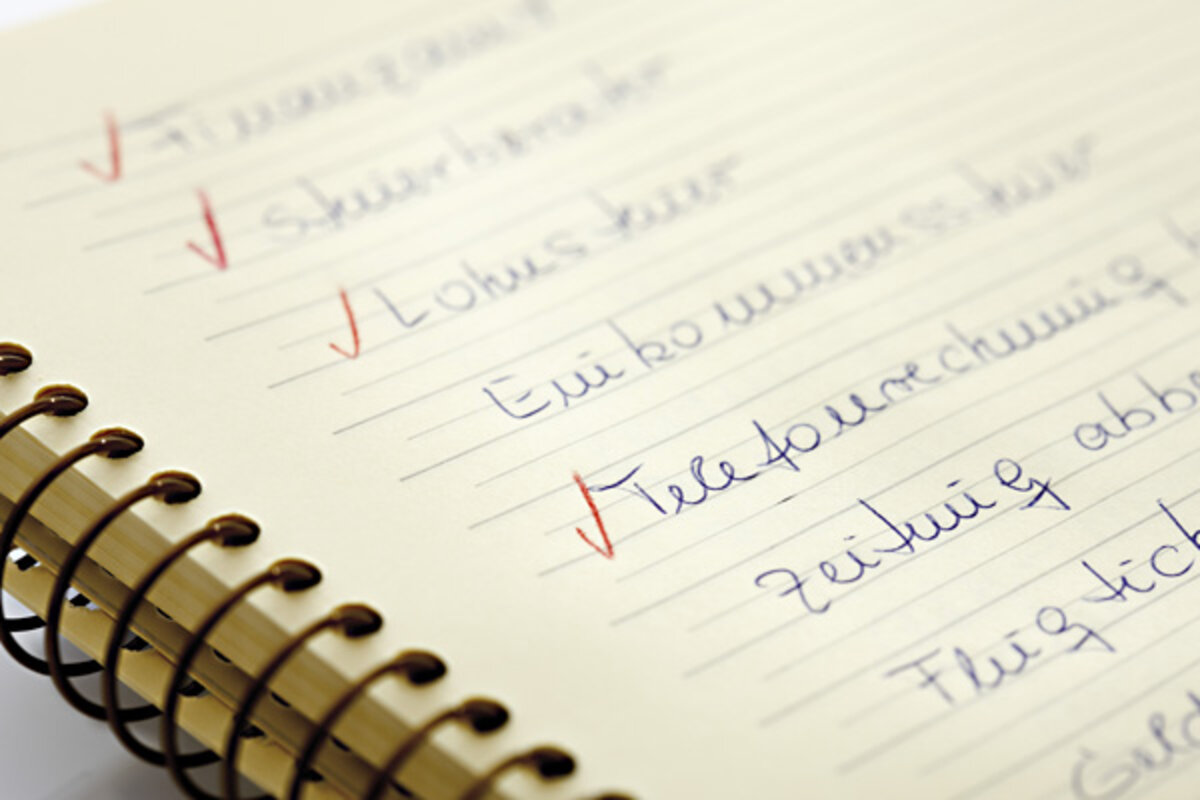 Finanzamt
Steuerberater
Lohnsteuer
Einkommenssteuer
Telefonrechnung
Zeitung
Flug
Geld